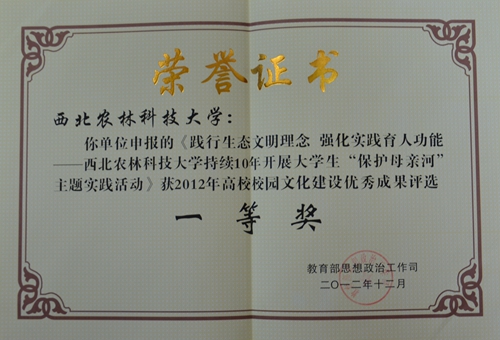 荣誉证书
西北农林科技大学：
你单位申报的《践行生态文明理念 强化实践育人功能
——西北农林科技大学持续10年开展大学生“保护母亲河”
主题实践活动》获2012年高校校园文化建设优秀成果评选
一等奖
教育部思想政治工作司
二〇一二年十二月